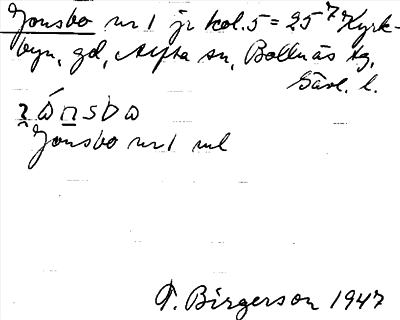 Jonsbo nr 1 jr kol. 5 = 25⁷ Kyrk-
byn, gd, Alfta sn, Bollnäs tg,
Gävl. l.
Jonsbo nr 1 ml
T. Birgerson 1947